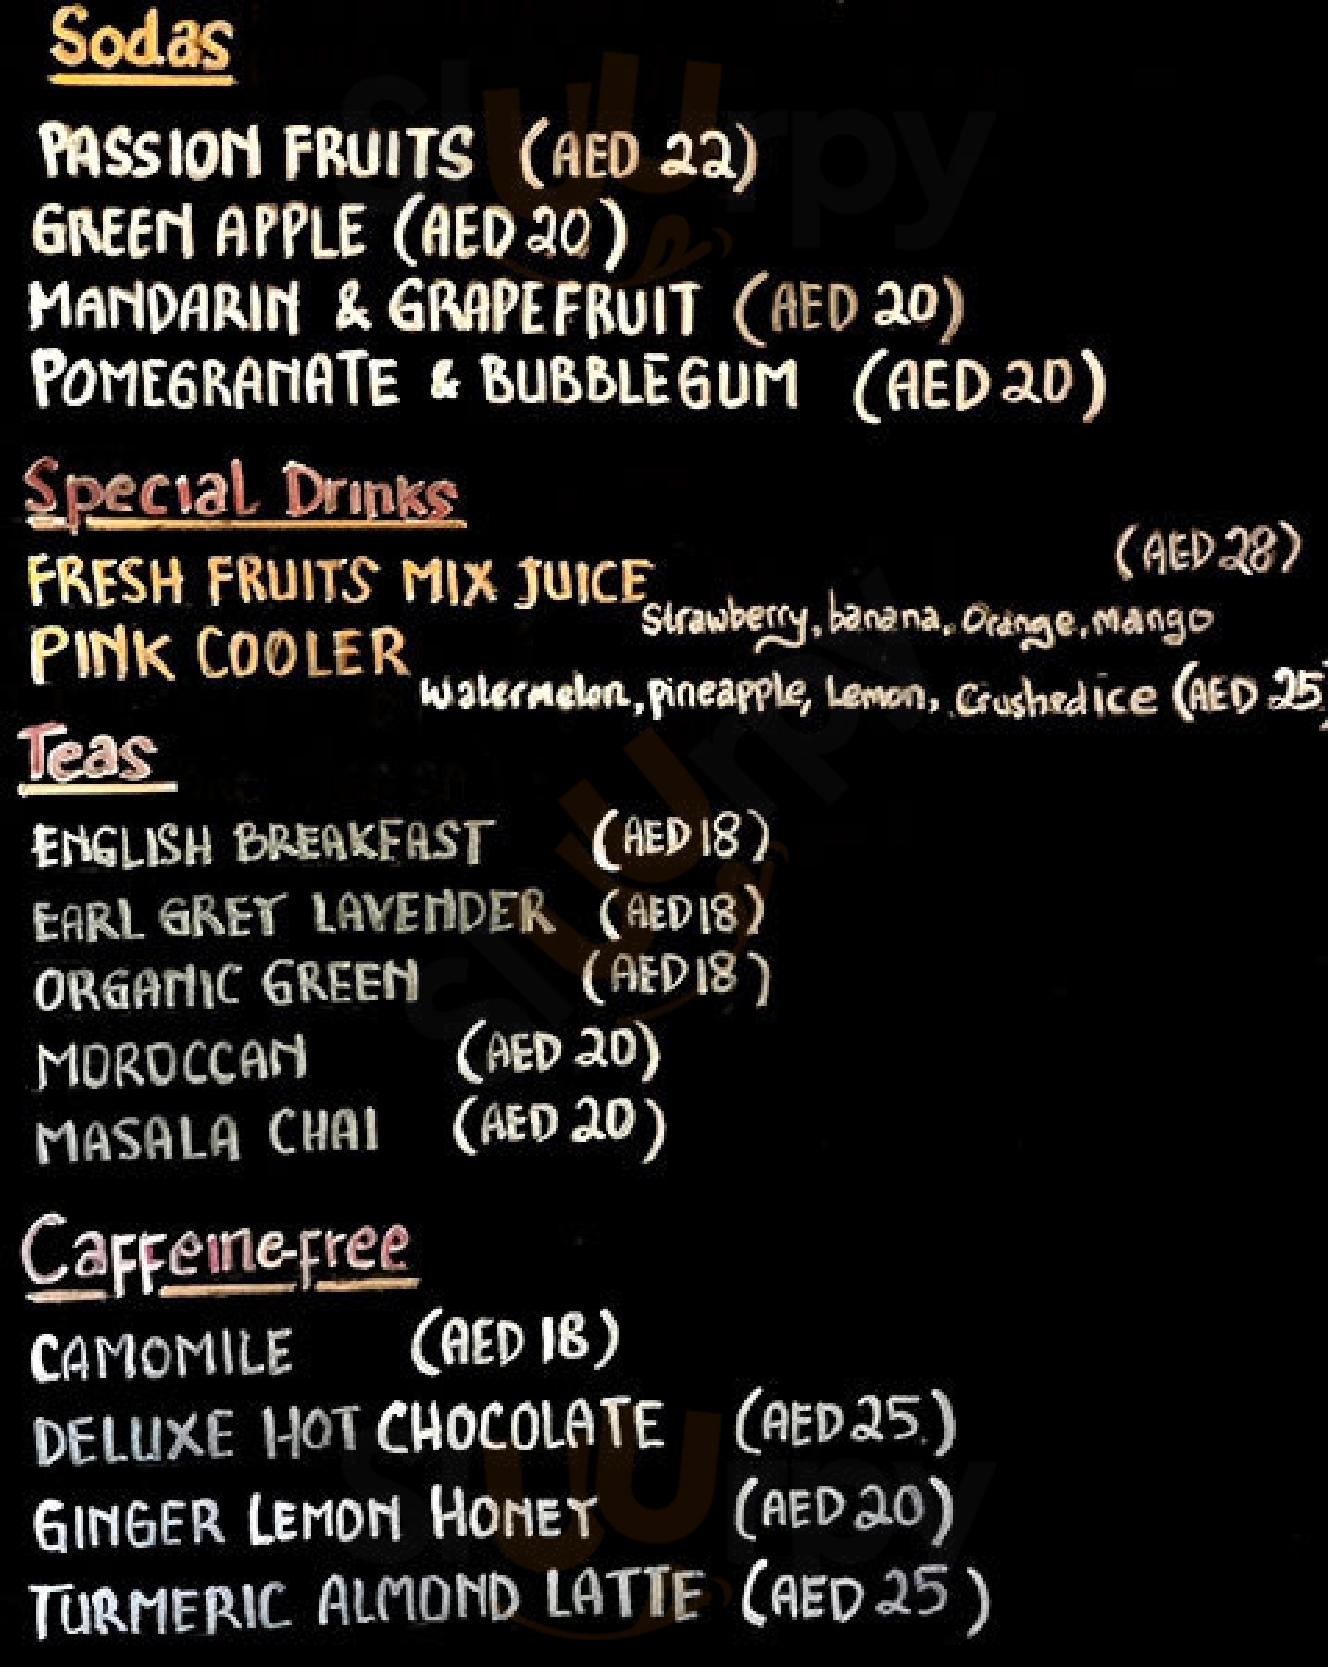 Sodas
PASSION FRUITS (AED 22)
GREEN APPLE (AED 20)
MANDARIN & GRAPEFRUIT (AED 20)
POMEGRANATE & BUBBLEGUM (AED 20)
Special Drinks
FRESH FRUITS MIX JUICE (AED 28)
Strawberry, banana, Orange, mango
PINK COOLER
Watermelon, pineapple, Lemon, Crushed ice (AED 25)
Teas
ENGLISH BREAKFAST (AED 18)
EARL GREY LAVENDER (AED 18)
ORGANIC GREEN (AED 18)
MOROCCAN (AED 20)
MASALA CHAI (AED 20)
Caffeine-free
CAMOMILE (AED 18)
DELUXE HOT CHOCOLATE (AED 25.)
GINGER LEMON HONEY (AED 20)
TURMERIC ALMOND LATTE (AED 25)
sluurpy
sluurpy
sluurpy